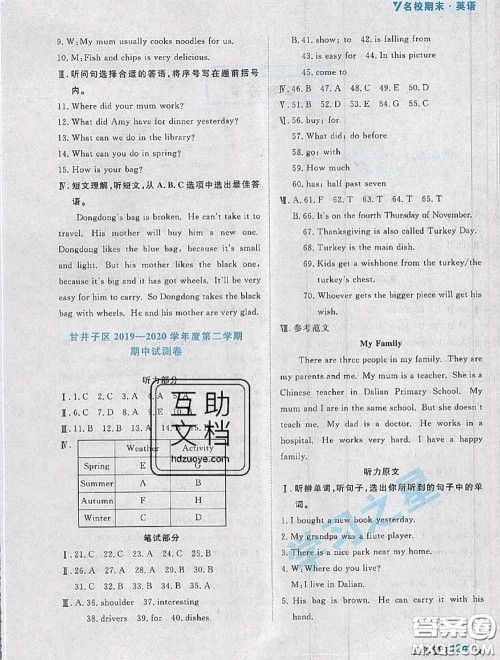 名校期末·英语
9. W: My mum usually cooks noodles for us.
10. M: Fish and chips is very delicious.
Ⅲ. 听问句选择合适的答语,将序号写在题前括号内。
11. Where did your mum work?
12. What did Amy have for dinner yesterday?
13. What can we do in the library?
14. What can you do in spring?
15. How is your bag?
Ⅳ. 短文理解,听短文,从A、B、C选项中选出最佳答语。
Dongdong's bag is broken. He can't take it to
travel. His mother will buy him a new one.
Dongdong likes the blue bag, because it's small
and light. But his mother likes the black one,
because it's big and it has got wheels. It'll be very
easy for him to carry. So Dongdong takes the black
bag with wheels. He and his mother is very glad.
甘井子区 2019—2020 学年度第二学期
期中试测卷
听力部分
Ⅰ. 1. C 2. C 3. A 4.
Ⅱ. 6. C 7. D 8. A 9. E 10. B
Ⅲ. 11. B 12. B 13. A 14.
Ⅳ.
Weather Activity
Spring E G
Summer A B
Autumn F H
Winter C D
笔试部分
Ⅰ. 21. C 22. C 23. A 24. C 25. B
Ⅱ. 26. A 27. B 28. C 29. A 30. B
31. C 32. B 33. A 34. C 35. B
Ⅲ. 36. shoulder 37. interesting
38. drivers 39. won 40. worker
B. 41. looks the same 42. in front of
43. is easy for 44. In this picture
45. come to
Ⅳ. 46. B 47. A 48. E 49. C 50. D
Ⅴ. 51. B 52. A 53. C 54. E 55. D
Ⅵ. 56. buy; for
57. What did; do before
58. go; with
59. How much
60. has; half past seven
Ⅶ. A. 61. F 62. T 63. F 64. T 65. T
B. 66. It's on the fourth Thursday of November.
67. Thanksgiving is also called Turkey Day.
68. Turkey is the main dish.
Ⅷ. 参考范文
My Family
There are three people in my family. They are
my parents and me. My mum is a teacher. She is a
Chinese teacher in Dalian Primary School. My
mum and I are in the same school. But she doesn't
teach me. My dad is a doctor. He works in a
hospital. He works very hard. I have a happy
family.
听力原文
Ⅰ. 听辨单词,听句子,选出你所听到的句子中的单词。
1. I bought a new book yesterday.
2. My grandpa was a flute player.
3. There is a nice park near my home.
4. W: Where do you live?
M: I live in Dalian.
5. My hand bag is broken. He can carry it with his
hand.
互助文档
hdzuoye.com
学习之星